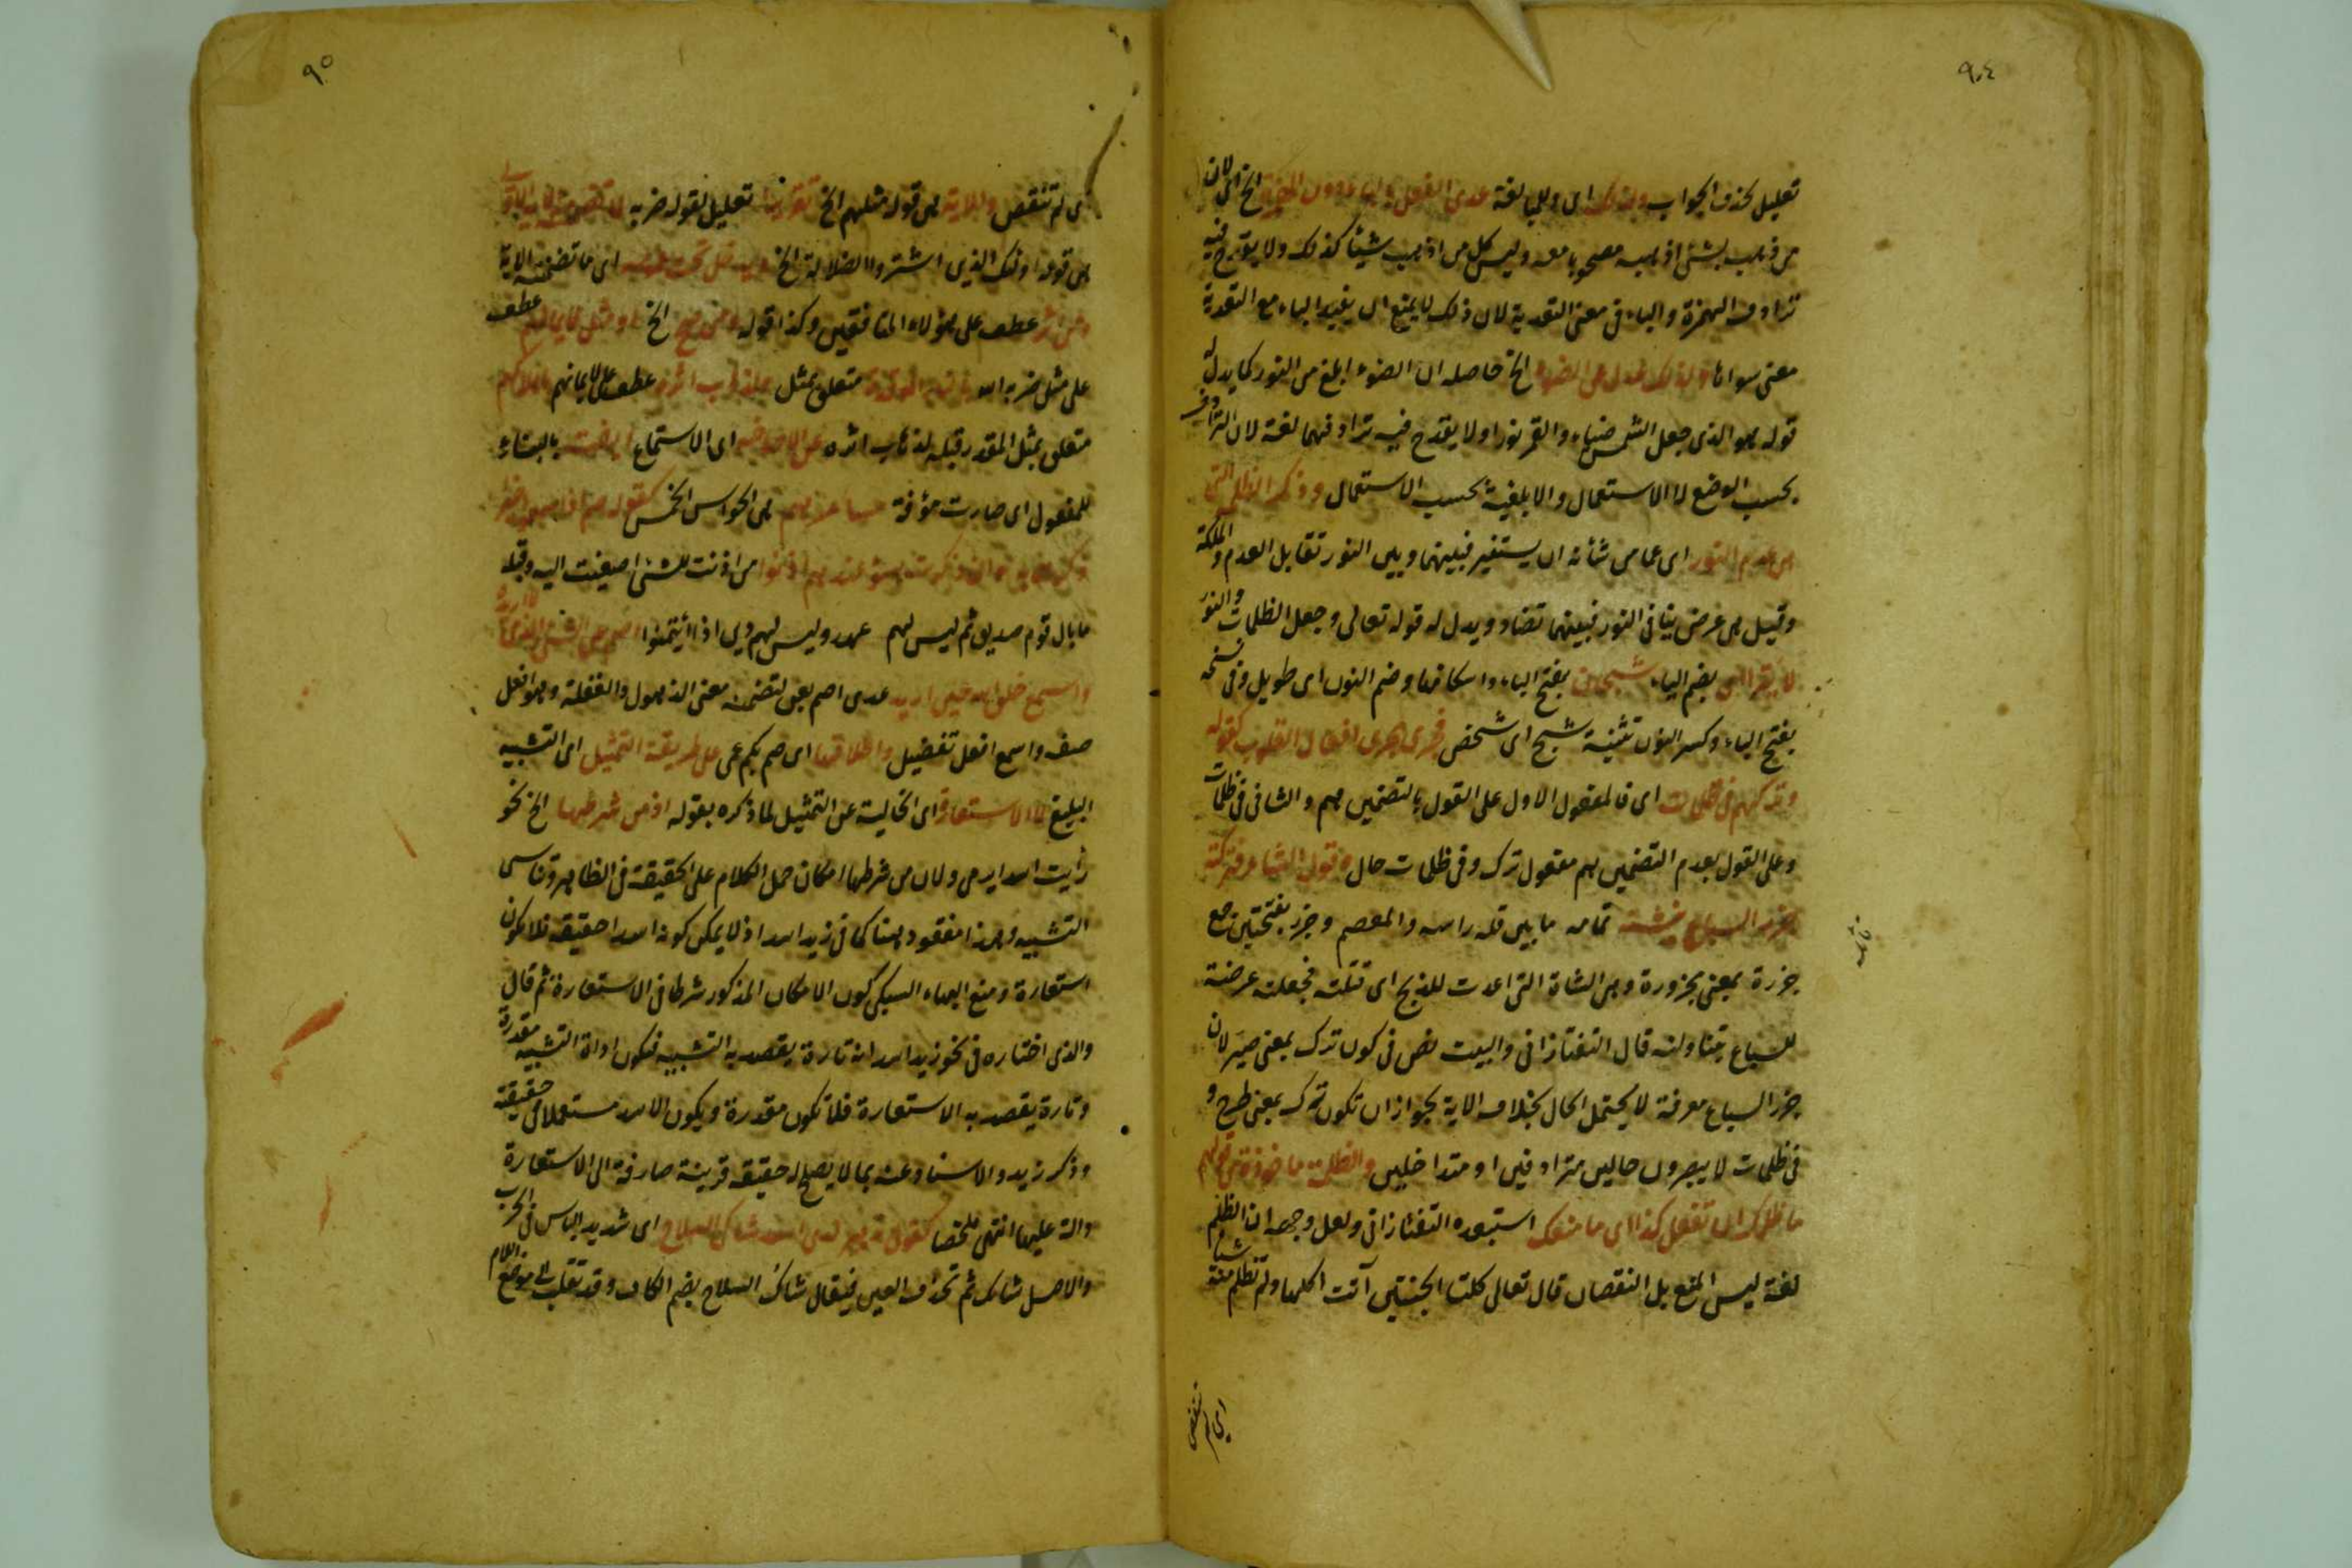 ٩٠٤
تعليل لحذف الجواب ولذلك اى وللمبالغة عدى الفعل بالباء دون الهمزة الخ اى لان
من ذهب بشئ اذهبه مصحوبا معه وليس كل من اذهب شيئا كذلك ولا يقدح فيه
ترادف الهمزة والباء فى معنى التعدية لان ذلك لا يمنع ان يفيد الباء مع التعدية
معنى سواها ولذلك عدل عن الضوء الخ حاصله ان الضوء ابلغ من النور كما يدل له
قوله هو الذى جعل الشمس ضياء والقمر نورا ولا يقدح فيه ترادفهما لغة لان الترادف
بحسب الوضع لا الاستعمال والابلغية بحسب الاستعمال وذكر الظلمة التى
هى عدم النور اى عما من شأنه ان يستنير فبينهما وبين النور تقابل العدم والملكة
وقيل هى عرض ينافى النور فبينهما تضاد ويدل له قوله تعالى وجعل الظلمات والنور
لا يتراءى بضم الياء شبحان بفتح الباء واسكانها وضم النون اى طويل وفى نسخة
بفتح الباء وكسر النون تثنية شبح اى شخص فجرى مجرى افعال القلوب كقوله
وتركهم فى ظلمات اى فالمفعول الاول على القول بالتضمين هم والثانى فى ظلمات
وعلى القول بعدم التضمين هم مفعول ترك وفى ظلمات حال وقول الشاعر فتركته
جزر السباع ينشنه تمامه ما بين قلة راسه والمعصم وجزر بفتحتين جمع
جزرة بمعنى مجزورة وهى الشاة التى اعدت للذبح اى قتلته فجعلته عرضة
للسباع يتناولنه قال التفتازانى والبيت نص فى كون ترك بمعنى صير لان
جزر السباع معرفة لا يحتمل الحال بخلاف الاية بجواز ان تكون ترك بمعنى طرح و
فى ظلمات لا يبصرون حالين مترادفين او متداخلين والظلمة ماخوذة من قولهم
ما ظلمك ان تفعل كذا اى ما منعك استبعده التفتازانى ولعل وجهه ان الظلم
لغة ليس المنع بل النقصان قال تعالى كلتا الجنتين آتت اكلها ولم تظلم منه شيئا
اى لم تنقص
٩٠
اى لم تنقص والاية هى قوله مثلهم الخ تعليل لقوله ضربه
هى قوله اولئك الذين اشتروا الضلالة الخ اى ما تضمنته الاية
ومن عطف على هؤلاء المنافقين وكذا قوله ومن صح الخ او مثل لايمانهم عطف
على مثل ضربه الله متعلق بمثل بذهاب اثره عطف على لايمانهم باهلاكهم
متعلق بمثل المقدر قبله لذهاب اثره عن الاصاخة اى الاستماع بالبناء
للمفعول اى صارت مؤفة مشاعرهم هى الحواس الخمس كقوله صم اذا سمعوا خيرا
ذكرت به وان ذكرت بسوء عندهم اذنوا من اذنت للشئ اصغيت اليه وقبله
ما بال قوم صديق ثم ليس لهم عهد وليس لهم دين اذا ائتمنوا اصم عن الشئ الذى لا اريده
واسمع خلق الله حين اريد عدى اصم بعن لتضمنه معنى الذهول والغفلة وهو افعل
صفة واسمع افعل تفضيل واطلاقها اى صم بكم عمى على طريقة التمثيل اى التشبيه
البليغ لا الاستعارة اى الخالية عن التمثيل لما ذكره بقوله اذ من شرطها الخ نحو
رأيت اسدا يرمى ولان من شرطها امكان حمل الكلام على الحقيقة فى الظاهر وتناسى
التشبيه وهذا مفقود هنا كما فى زيد اسد اذ لا يمكن كونه اسدا حقيقة فلا تكون
استعارة ومنع البهاء السبكى كون الامكان المذكور شرطا فى الاستعارة ثم قال
والذى اختاره فى نحو زيد اسد انه تارة يقصد به التشبيه فتكون اداة التشبيه مقدرة
وتارة يقصد به الاستعارة فلا تكون مقدرة ويكون الاسد مستعملا فى حقيقته
وذكر زيد والاسناد عنه بما لا يصلح له حقيقة قرينة صارفة الى الاستعارة
دالة عليها انتهى ملخصا كقول زهير لدى اسد شاكى السلاح اى شديد الباس فى الحرب
والاصل شائك ثم تحذف العين فيقال شاك السلاح بضم الكاف وقد تقلب الى موضع اللام